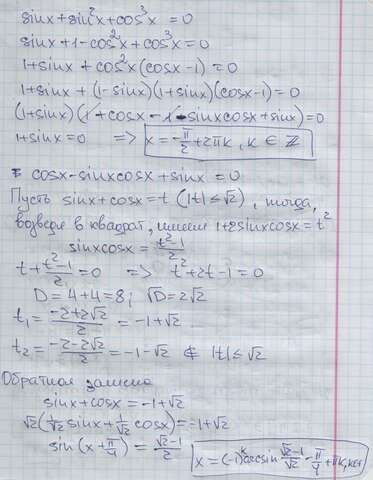 sinx+sin²x+cos³x = 0
sinx+1-cos²x+cos³x=0
1+sinx+cos²x(cosx-1)=0
1+sinx+(1-sinx)(1+sinx)(cosx-1)=0
(1+sinx)(1+cosx-1-sinxcosx+sinx)=0
1+sinx=0 => x=-π/2+2πk, k∈Z
cosx-sinxcosx+sinx=0
Пусть sinx+cosx=t (|t|≤√2), тогда,
возведя в квадрат, имеем 1+2sinxcosx=t²
sinxcosx=(t²-1)/2
t+(t²-1)/2=0 => t²+2t-1=0
D=4+4=8; √D=2√2
t₁=(-2+2√2)/2=-1+√2
t₂=(-2-2√2)/2=-1-√2 ∉ |t|≤√2
Обратная замена
sinx+cosx=-1+√2
√2(1/√2 sinx+1/√2 cosx)=-1+√2
sin(x+π/4)=(√2-1)/2 x=(-1)ᵏarcsin (√2-1)/√2-π/4+πk, k∈Z